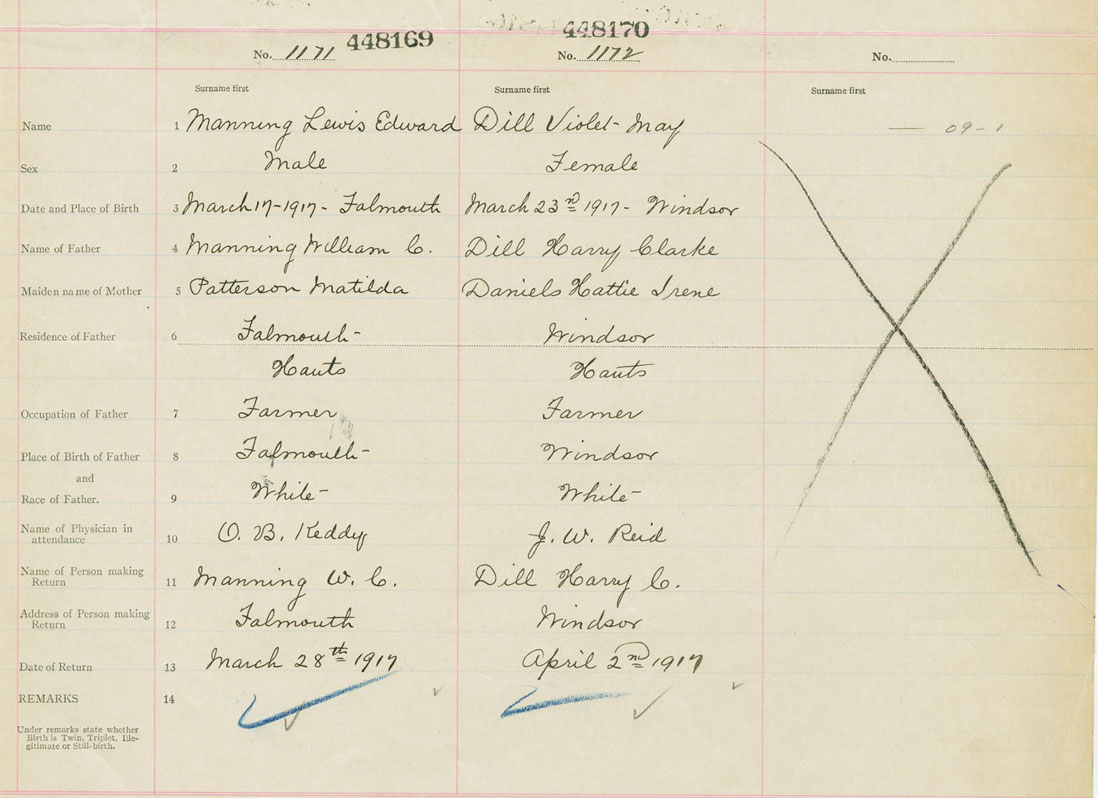 448169 448170
No. 1171 No. 1172 No.
Surname first Surname first Surname first
Name 1 Manning Lewis Edward Dill Violet May — 09-1
Sex 2 Male Female
Date and Place of Birth 3 March 17-1917- Falmouth March 23rd 1917- Windsor
Name of Father 4 Manning William C. Dill Harry Clarke
Maiden name of Mother 5 Patterson Matilda Daniels Hattie Irene
Residence of Father 6 Falmouth- Windsor
Hants Hants
Occupation of Father 7 Farmer Farmer
Place of Birth of Father 8 Falmouth- Windsor
and
Race of Father. 9 White- White-
Name of Physician in
attendance 10 O. B. Keddy J. W. Reid
Name of Person making
Return 11 Manning W. C. Dill Harry C.
Address of Person making
Return 12 Falmouth Windsor
Date of Return 13 March 28th 1917 April 2nd 1917
REMARKS 14
Under remarks state whether
Birth is Twin, Triplet, Ille-
gitimate or Still-birth.